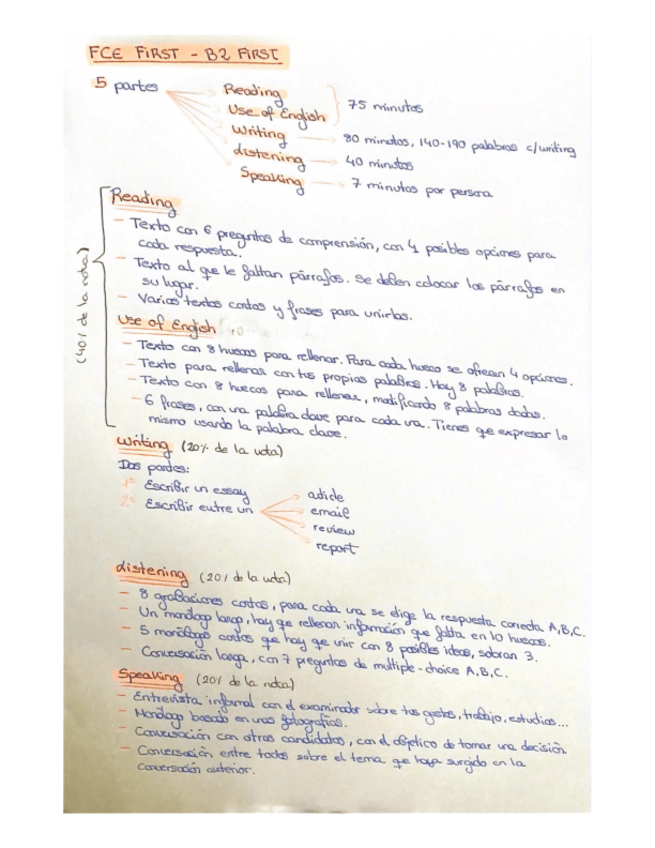 FCE FIRST - B2 FIRST
5 partes
Reading
Use of English
75 minutos
Writing
80 minutos, 140-190 palabras c/writing
Listening
40 minutos
Speaking
7 minutos por persona
(40% de la nota)
Reading
- Texto con 6 preguntas de comprensión, con 4 posibles opciones para
cada respuesta.
- Texto al que le faltan párrafos. Se deben colocar los párrafos en
su lugar.
- Varios textos cortos y frases para unirlas.
Use of English
- Texto con 8 huecos para rellenar. Para cada hueco se ofrean 4 opciones.
- Texto para rellenar con tus propias palabras. Hay 8 palabras.
- Texto con 8 huecos para rellenar, modificando 8 palabras dadas.
- 6 frases, con una palabra clave para cada una. Tienes que expresar lo
mismo usando la palabra clave.
Writing (20% de la nota)
Dos partes:
1ª Escribir un essay
2ª Escribir entre un
article
email
review
report
Listening (20% de la nota)
- 8 grabaciones cortas, para cada una se elige la respuesta correcta A, B, C.
- Un monólogo largo, hay que rellenar información que falta en 10 huecos.
- 5 monólogos cortos que hay que unir con 8 posibles ideas, sobran 3.
- Conversación larga, con 7 preguntas de multiple-choice A, B, C.
Speaking (20% de la nota)
- Entrevista informal con el examinador sobre tus gustos, trabajo, estudios...
- Monólogo basado en unas fotografías.
- Conversación con otros candidatos, con el objetivo de tomar una decisión.
- Conversación entre todos sobre el tema que haya surgido en la
conversación anterior.